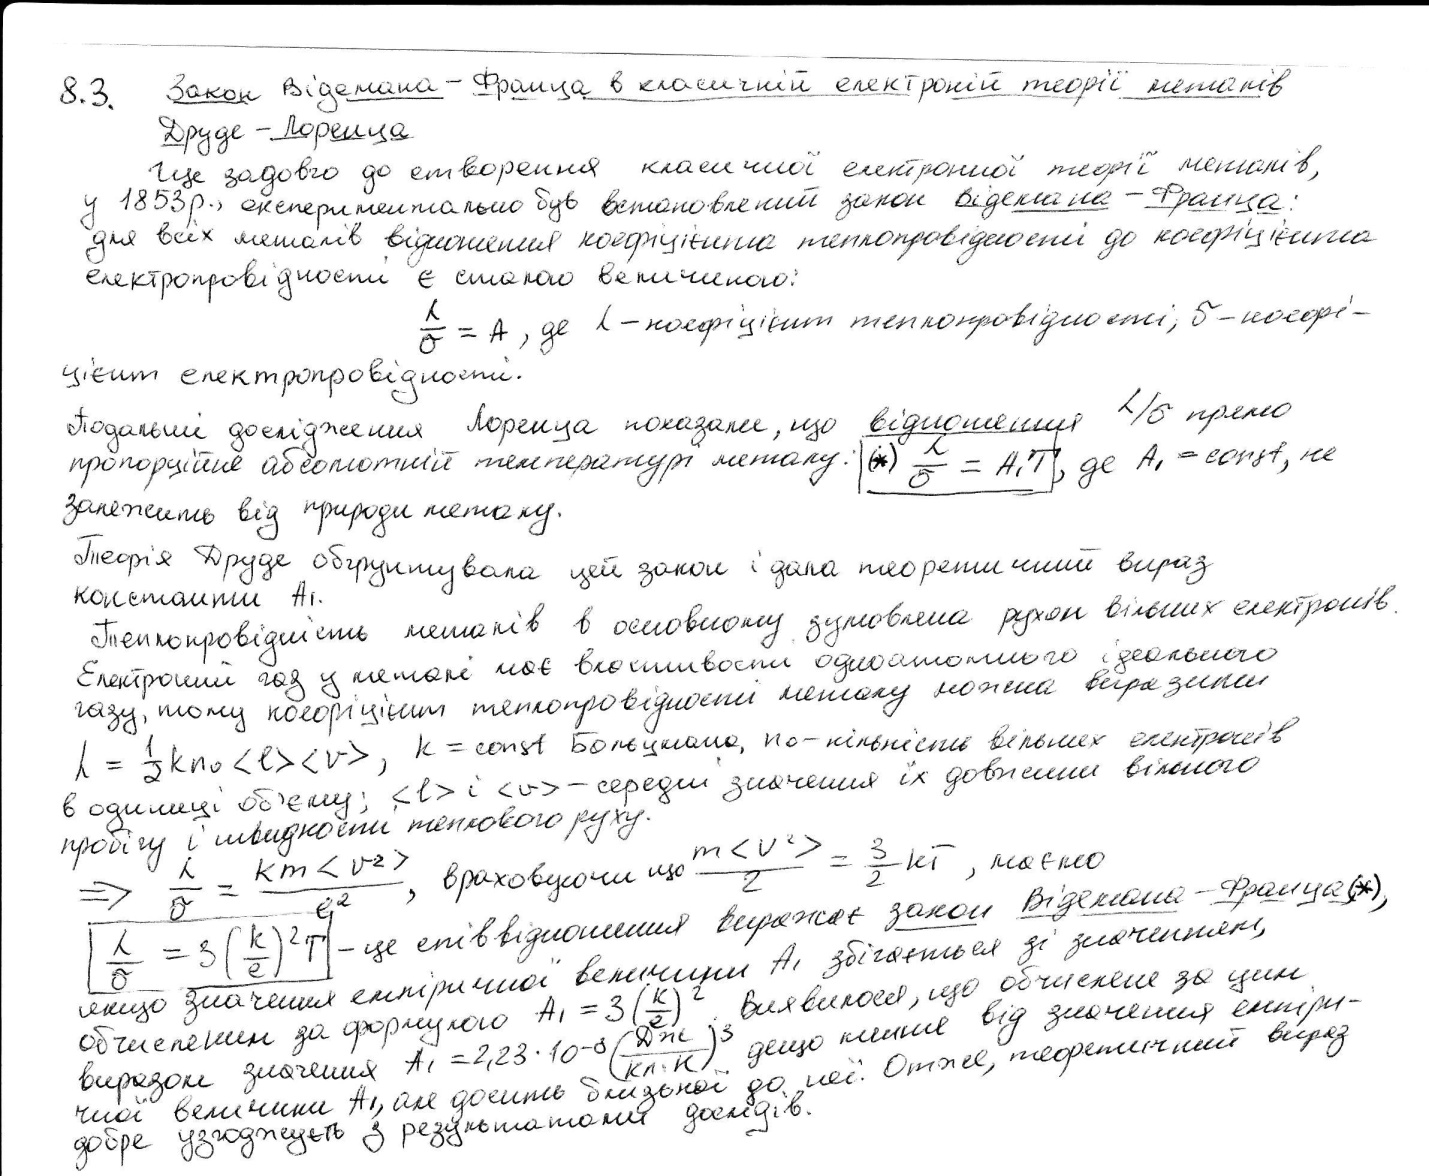 8.3. Закон Відемана-Франца в класичній електроній теорії металів
Друде-Лоренца
Іще задовго до створення класичної електронної теорії металів,
у 1853р., експериментально був встановлений закон Відемана-Франца:
для всіх металів відношення коефіцієнта теплопровідності до коефіцієнта
електропровідності є сталою величиною:
λ/σ = A, де λ-коефіцієнт теплопровідності, σ-коефі-
цієнт електропровідності.
Подальші дослідження Лоренца показали, що відношення λ/σ прямо
пропорційне абсолютній температурі металу: (*) λ/σ = A₁T, де A₁ = const, не
залежить від природи металу.
Теорія Друде обґрунтувала цей закон і дала теоретичний вираз
константи A₁.
Теплопровідність металів в основному зумовлена рухом вільних електронів.
Електроний газ у металі має властивості одноатомного ідеального
газу, тому коефіцієнт теплопровідності металу можна виразити
λ = 1/2 k n₀ <l><v>, k = const Больцмана, n₀-кількість вільних електронів
в одиниці об'єму; <l> і <v> - середні значення їх довжини вільного
пробігу і швидкості теплового руху.
=> λ/σ = km<v²>/e², враховуючи що m<v²>/2 = 3/2 kT, маємо
λ/σ = 3(k/e)²T - це співвідношення виражає закон Відемана-Франца(*),
якщо значення емпіричної величини A₁ збігається зі значенням,
обчисленим за формулою A₁ = 3(k/e)². Виявилося, що обчислене за цим
виразом значення A₁ = 2,23·10⁻⁸(Дж/Кл·К)³ дещо менше від значення емпіри-
чної величини A₁, але досить близької до неї. Отже, теоретичний вираз
добре узгоджують з результатами дослідів.